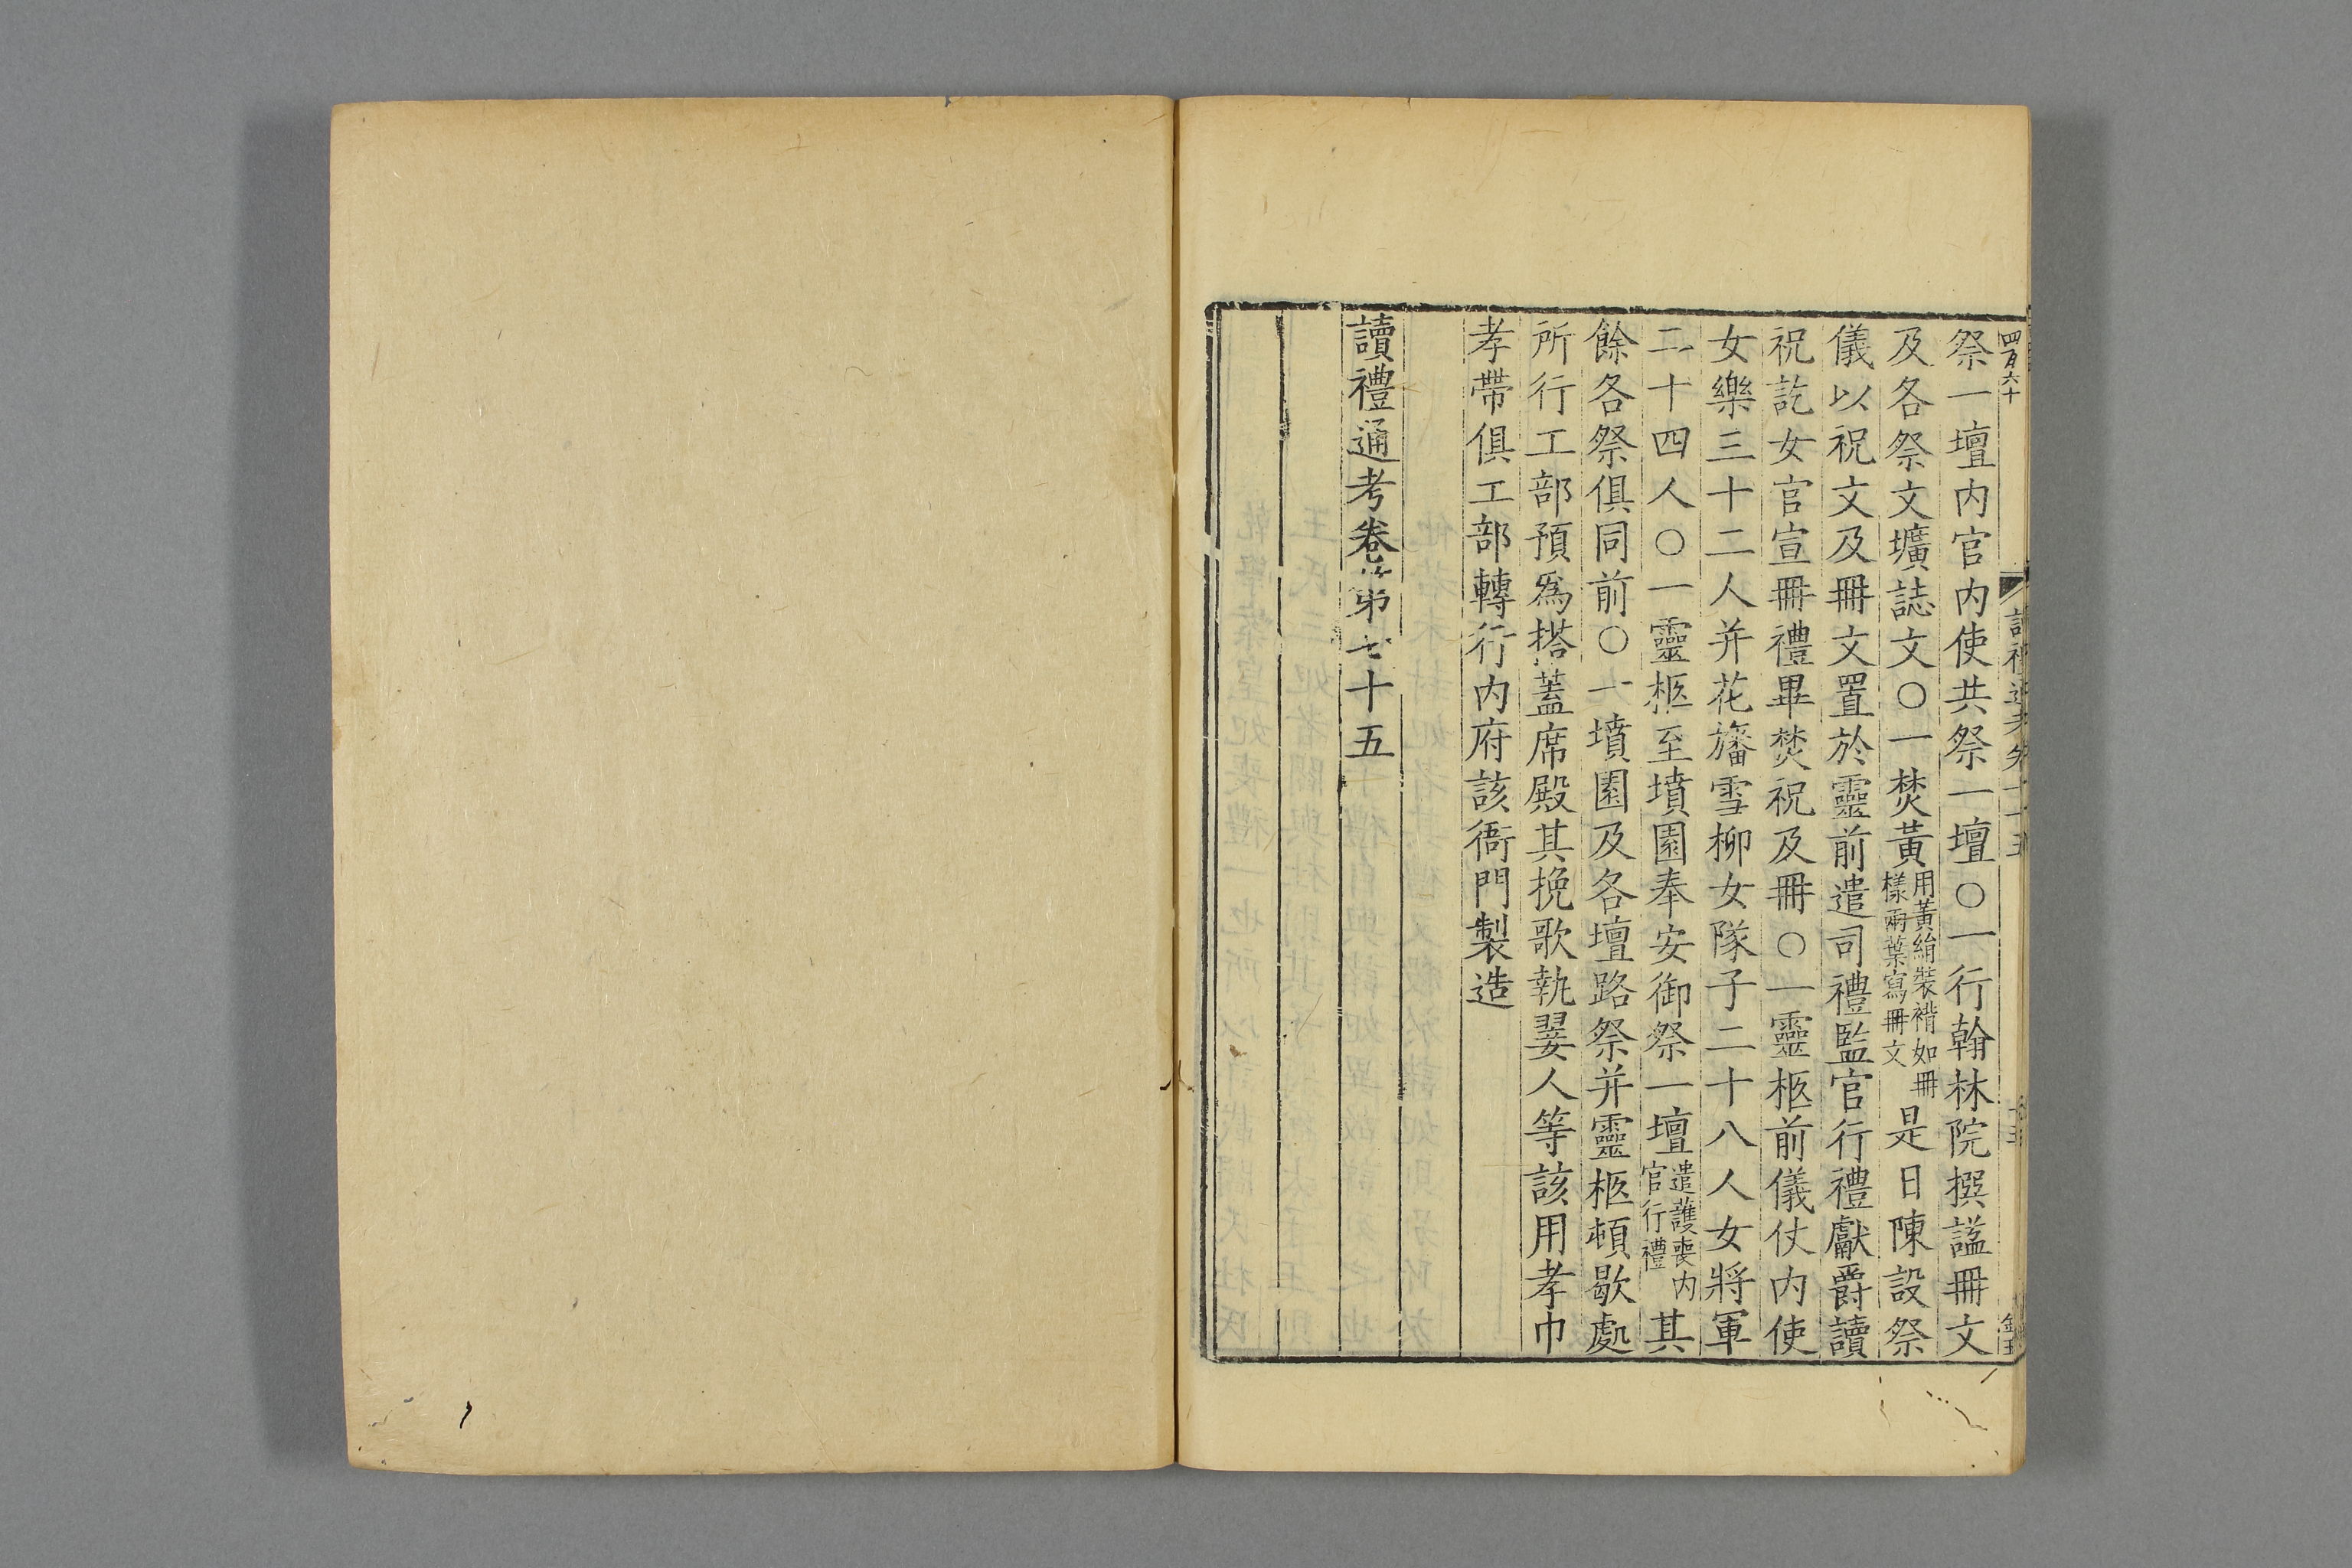 四百六十
祭一壇内官内使共祭一壇○一行翰林院撰謚冊文
及各祭文壙誌文○一焚黃用黃絹裝褙如冊樣兩葉寫冊文是日陳設祭
儀以祝文及冊文置於靈前遣司禮監官行禮獻爵讀
祝訖女官宣冊禮畢焚祝及冊○一靈柩前儀仗内使
女樂三十二人并花旛雪柳女隊子二十八人女將軍
二十四人○一靈柩至墳園奉安御祭一壇遣護喪内官行禮其
餘各祭俱同前○一墳園及各壇路祭并靈柩頓歇處
所行工部預爲搭蓋席殿其挽歌執翣人等該用孝巾
孝帶俱工部轉行内府該衙門製造
讀禮通考卷第七十五